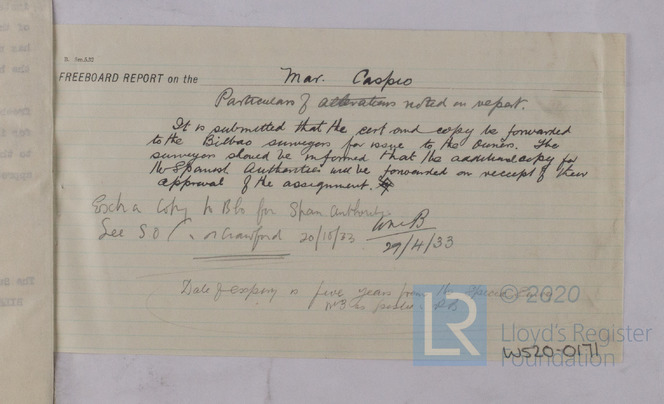 FREEBOARD REPORT on the Mar. Caspio
Particulars of alterations noted on report.
It is submitted that the cert and copy be forwarded
to the Bilbao surveyors for issue to the owners. The
surveyors should be informed that the additional copy for
the Spanish Authorities will be forwarded on receipt of their
approval of the assignment.
Extra Copy to Bbo for Span Authority.
See S.O. Crawford 20/10/33
29/4/33
Date of expiry is five years from the Special Survey
© 2020
LR
Lloyd's Register
Foundation
W520-0171